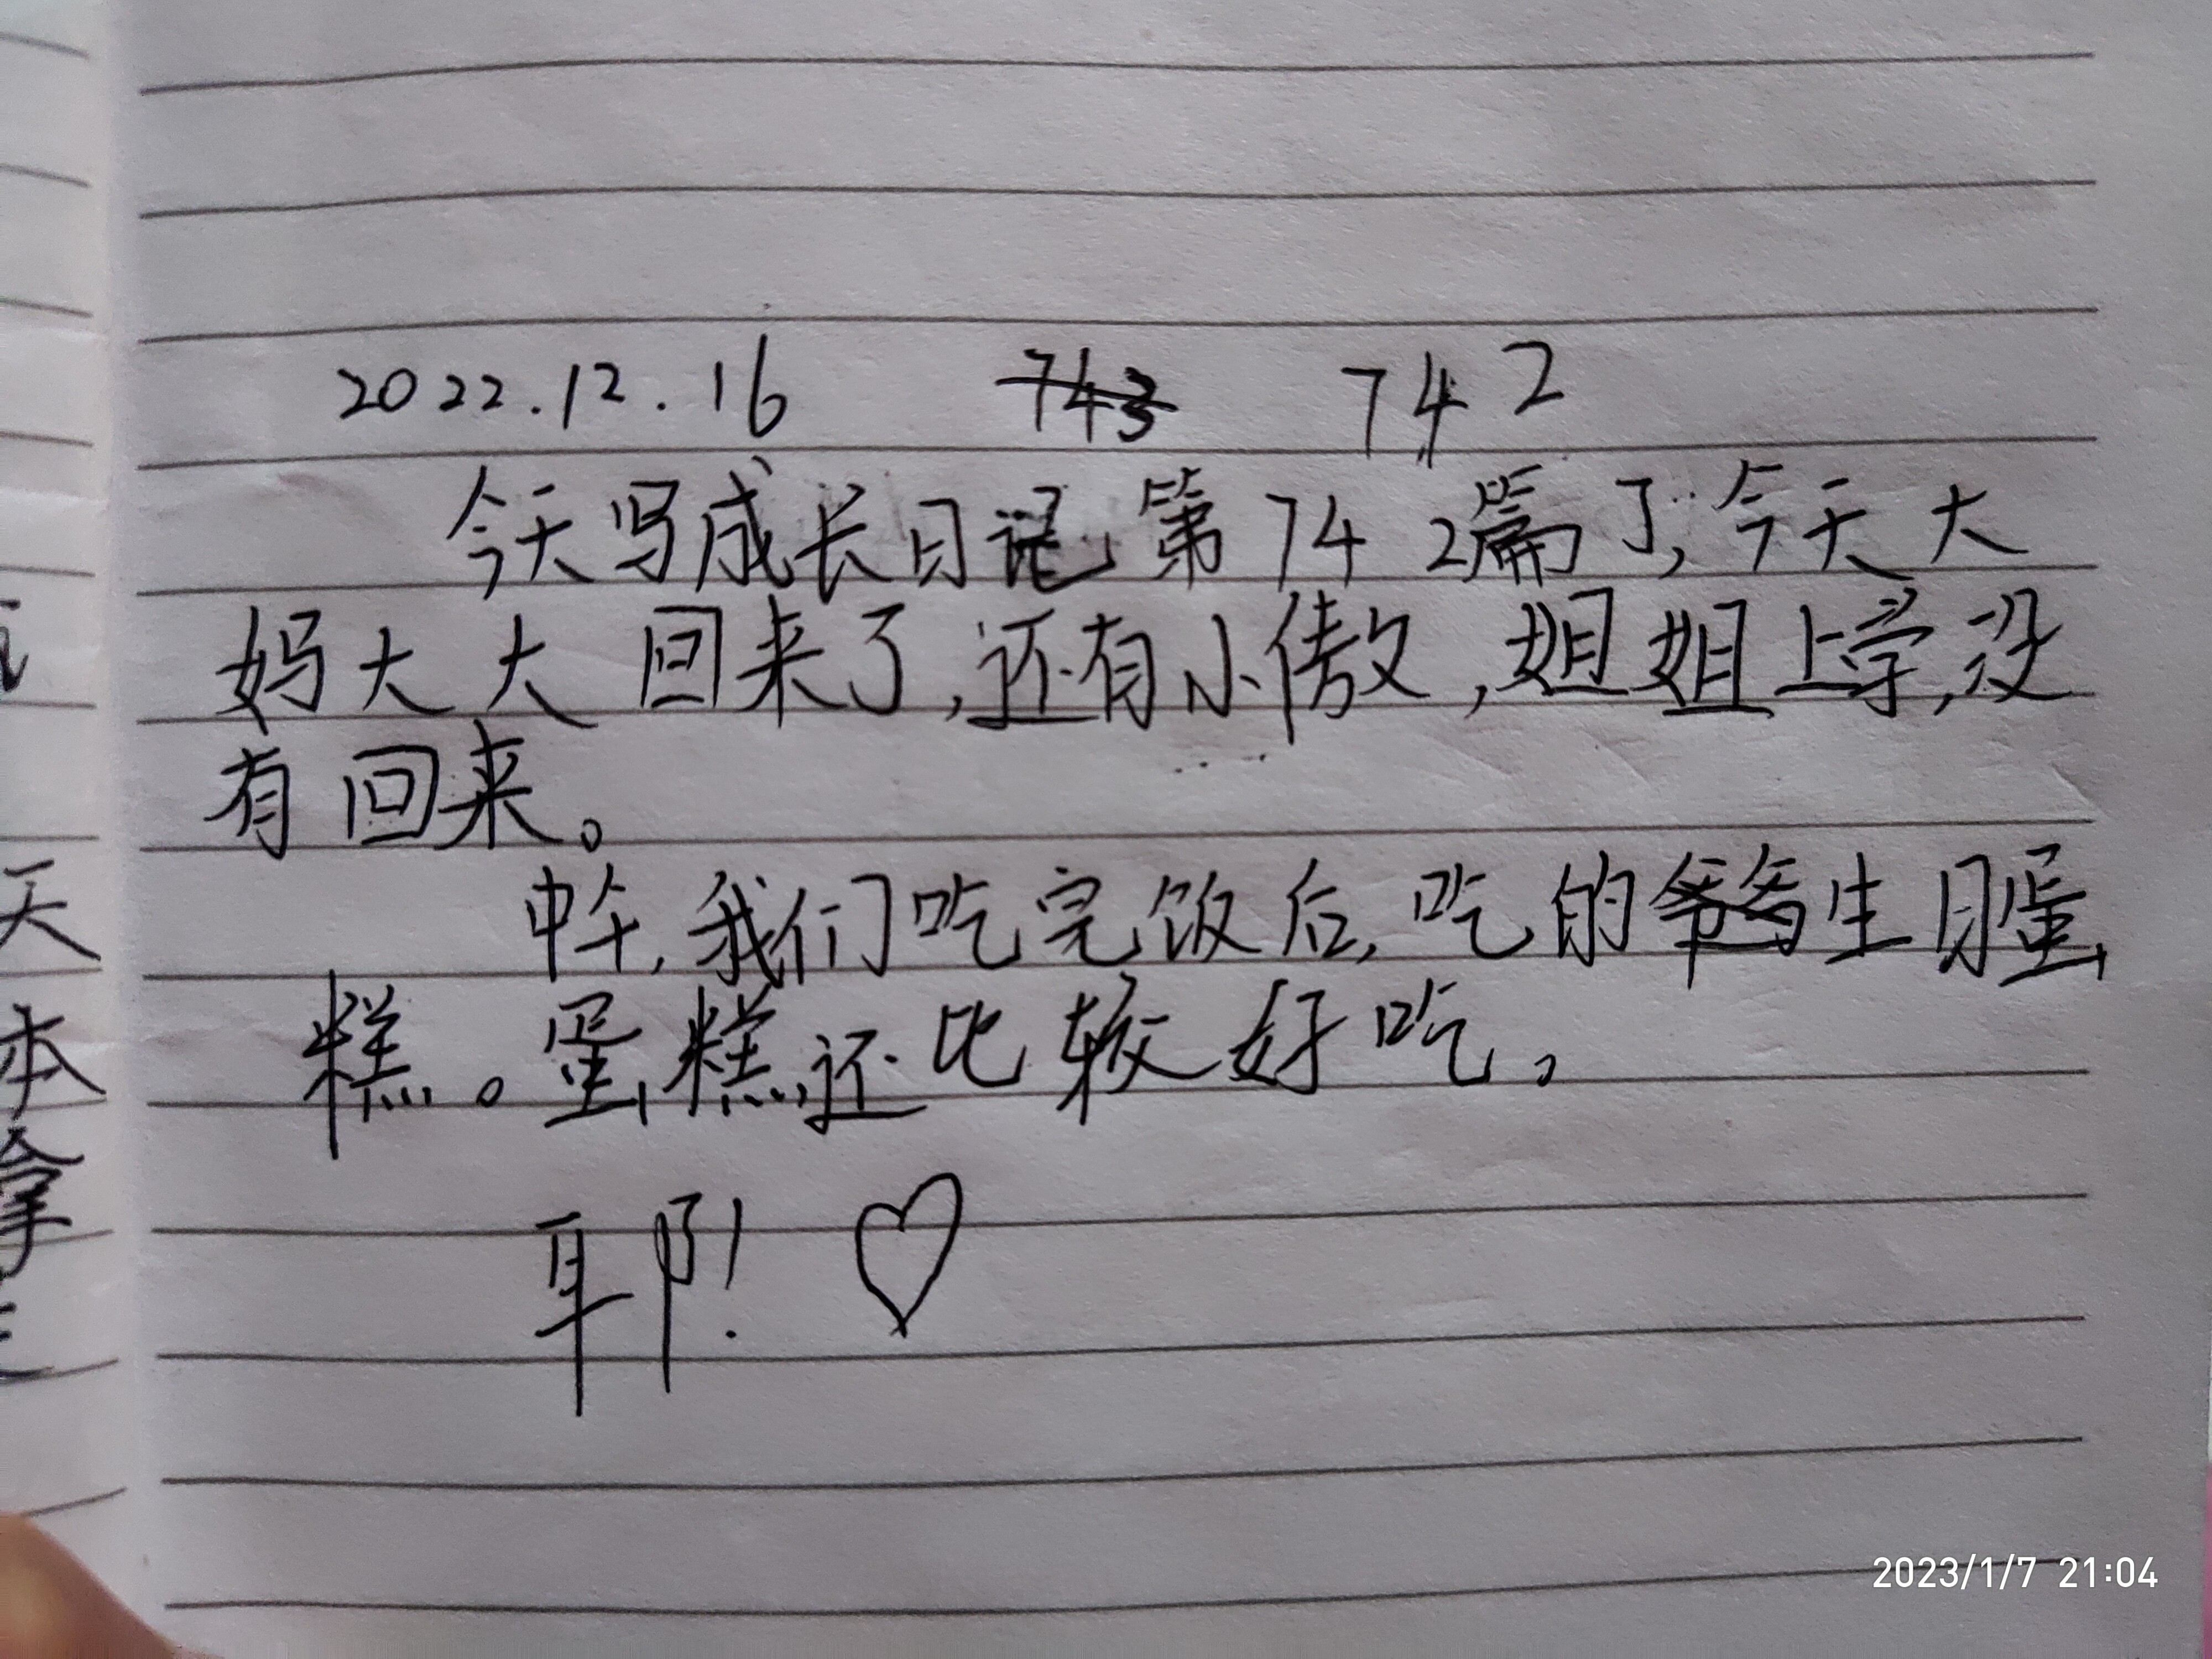 2022.12.16 743 742
今天写成长日记第742篇了,今天大
妈大大回来了,还有小傲,姐姐上学,没
有回来。
中午,我们吃完饭后,吃的爷爷生日蛋
糕。蛋糕还比较好吃。
耶!♡
天
本
拿
2023/1/7 21:04